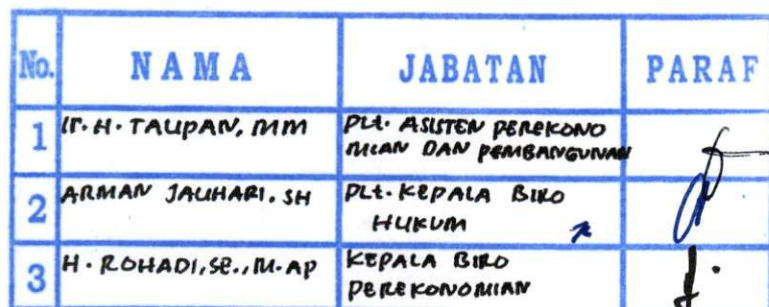 No. NAMA JABATAN PARAF
1 Ir. H. TAUPAN, MM PLt. ASISTEN PEREKONO
MIAN DAN PEMBANGUNAN
2 ARMAN JAUHARI, SH PLt. KEPALA BIRO
HUKUM
3 H. ROHADI, SE., M.AP KEPALA BIRO
PEREKONOMIAN